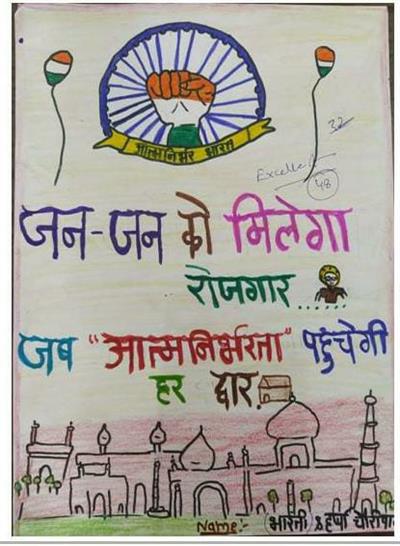 आत्मनिर्भर भारत
32
Excellent
48
जन-जन को मिलेगा
रोजगार......
जब "आत्मनिर्भरता" पहुंचेगी
हर द्वार.
Name:- भारती &